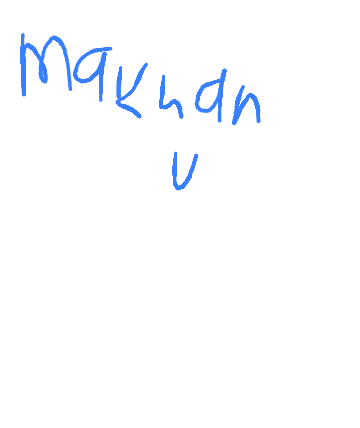 Makhan
U